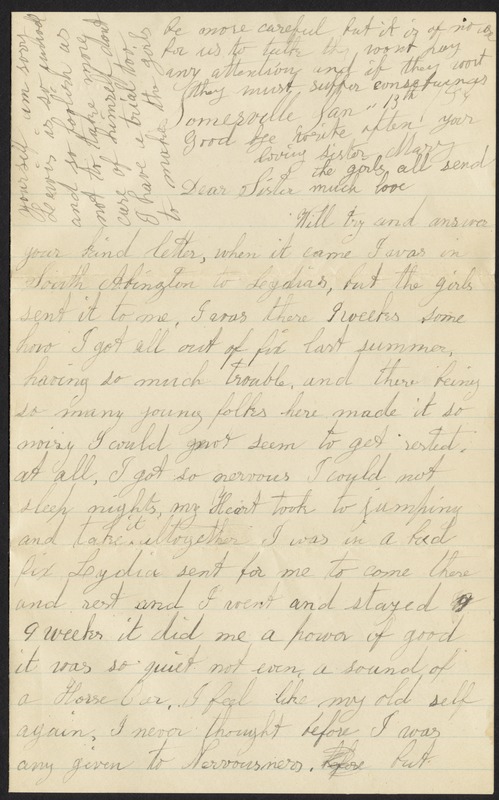 yourself am sorry
Lewis is so unwell
and so foolish as
not to take more
care of himself dont
I have a trial too.
to make the girls
be more careful but it is of no use
for us to talk they wont pay
any attention and if they wont
they must suffer consequences
Somerville Jan " 13th
Good bye write often, your
loving sister Mary
the girls all send
much love
Dear Sister
Will try and answer
your kind letter, when it came I was in
South Abington to Lydias, but the girls
sent it to me, I was there 9 weeks some
how I got all out of fix last summer,
having so much trouble, and there being
so many young folks here made it so
noisy I could not seem to get rested.
at all, I got so nervous I could not
sleep nights, my Heart took to jumping
and take it altogether I was in a bad
fix Lydia sent for me to come there
and rest and I went and stayed 9
9 weeks it did me a power of good
it was so quiet not even a sound of
a Horse Car, I feel like my old self
again, I never thought before I was
any given to Nervousness. but